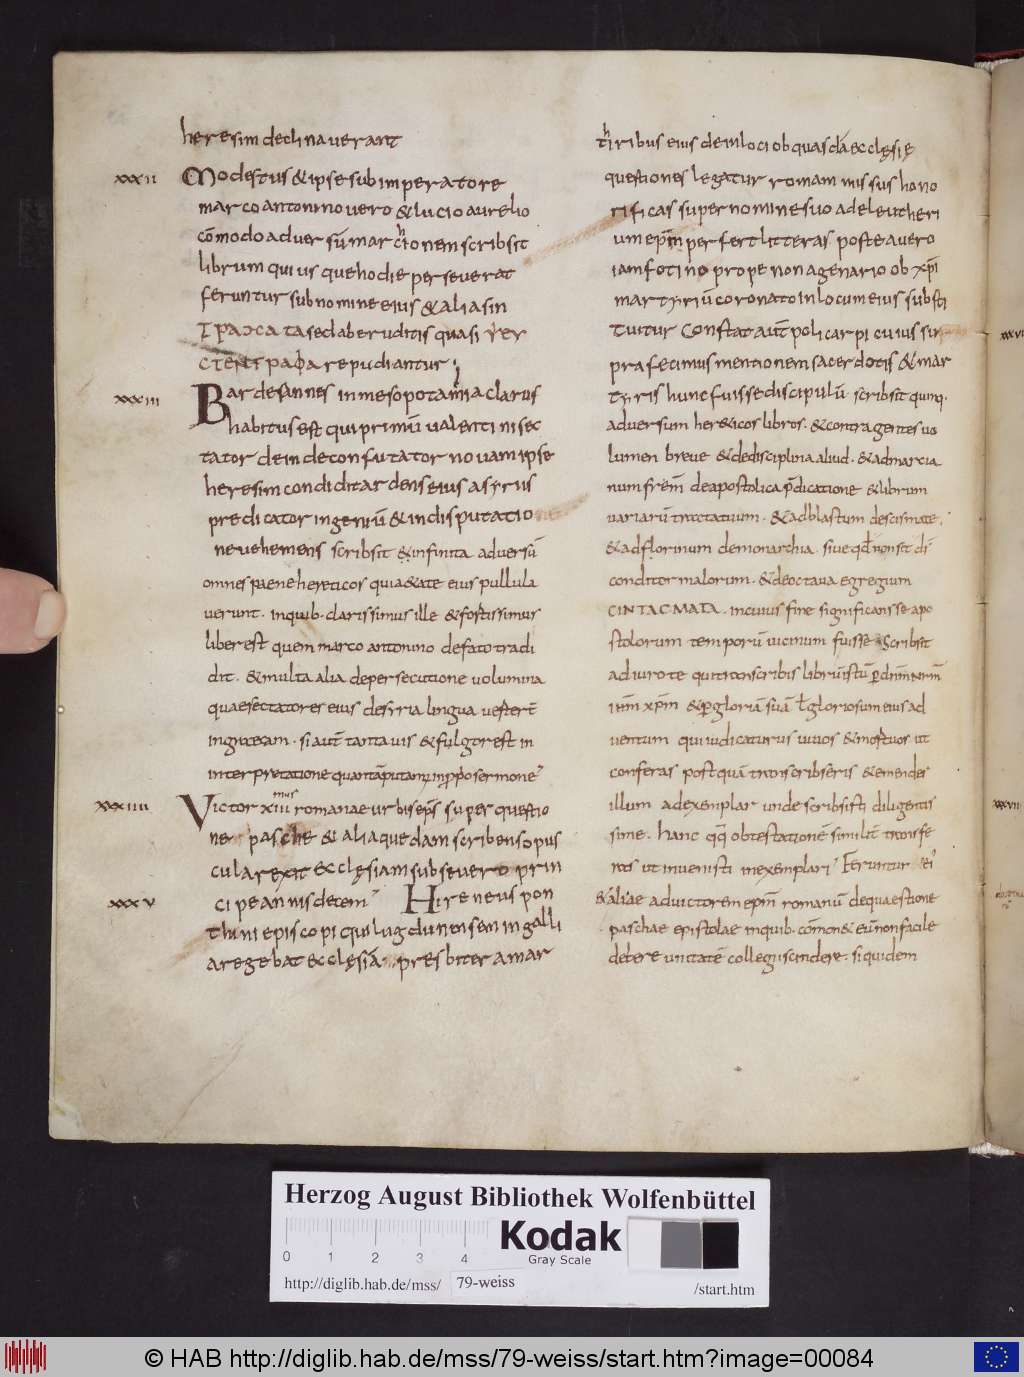 heresim declinauerant
xxxii
Modestus & ipse sub imperatore
marco antonino uero & lucio aurelio
cōmodo aduersū marcionem scribsit
librum qui usque hodie perseuerat
feruntur sub nomine eius & alia sin
ta sed ab eruditis quasi
repudiantur
xxxiii
Bardesannes in mesopotamia clarus
habitus est qui primū ualentini sec
tator deinde confutator nouam ipse
heresim condidit ardens eius a syrus
predicator ingeniū & in disputatio
ne uehemens scribsit & infinita aduersū
omnes paene hereticos qui aetate eius pullula
uerunt . inquib. clarissimus ille & fortissimus
liber est quem marco antonino de fato tradi
dit . & multa alia de persecutione uolumina
quae sectatores eius de syria lingua uerterē
in grecam . si autē tanta uis & fulgor est in
interpretatione quantā putamus in proprio sermone
xxxiiii
Victor xiii mus romanae urbis eps super questio
ne pasche & alia quedam scribens opus
cula rexit ecclęsiam sub seuero prin
cipe annis decem
xxxv
Hireneus pon
thini episcopi qui lugdunensem in galli
a regebat ecclęsiā presbiter a mar
tiribus eiusdem loci ob quasdā ecclęsię
questiones legatur romam missus hono
rificas super nomine suo ad eleutheri
um epm perfert litteras postea uero
iam fotino prope nonagenario ob xpi
martyriū coronato in locum eius substi
tuitur Constat autē policarpi cuius su
pra fecimus mentionem sacerdotis & mar
tyris hunc fuisse discipulū . scribsit quinq.
aduersum her&icos libros . & contra gentes uo
lumen breue & de disciplina aliud . & ad marcia
num frēm de apostolica pdicatione & librum
uariarū tractatuum . & ad blastum de scismate .
& ad florinum de monarchia . siue qd non sit ds
conditor malorum . & de octaua egregium
CINTACMATA . in cuius fine significans se apo
stolorum temporū uicinum fuisse scribsit
adiuro te qui transcribis librū istū p dnm nrm
ihm xpm & p gloriā suā gloriosum eius ad
uentum qui iudicaturus uiuos & mortuos ut
conferas postquā transcribseris & emendes
illum ad exemplar unde scribsisti diligentis
sime . hanc qq obtestationē similit transfe
ras ut inuenisti in exemplari Feruntur ei
& aliae ad uictorem epm romanū de quaestione
paschae epistolae in quib. cōmon& eū non facile
debere unitatē collegii scindere . siquidem
xxxvii
Herzog August Bibliothek Wolfenbüttel
Kodak
Gray Scale
0 1 2 3 4
http://diglib.hab.de/mss/ 79-weiss /start.htm
© HAB http://diglib.hab.de/mss/79-weiss/start.htm?image=00084